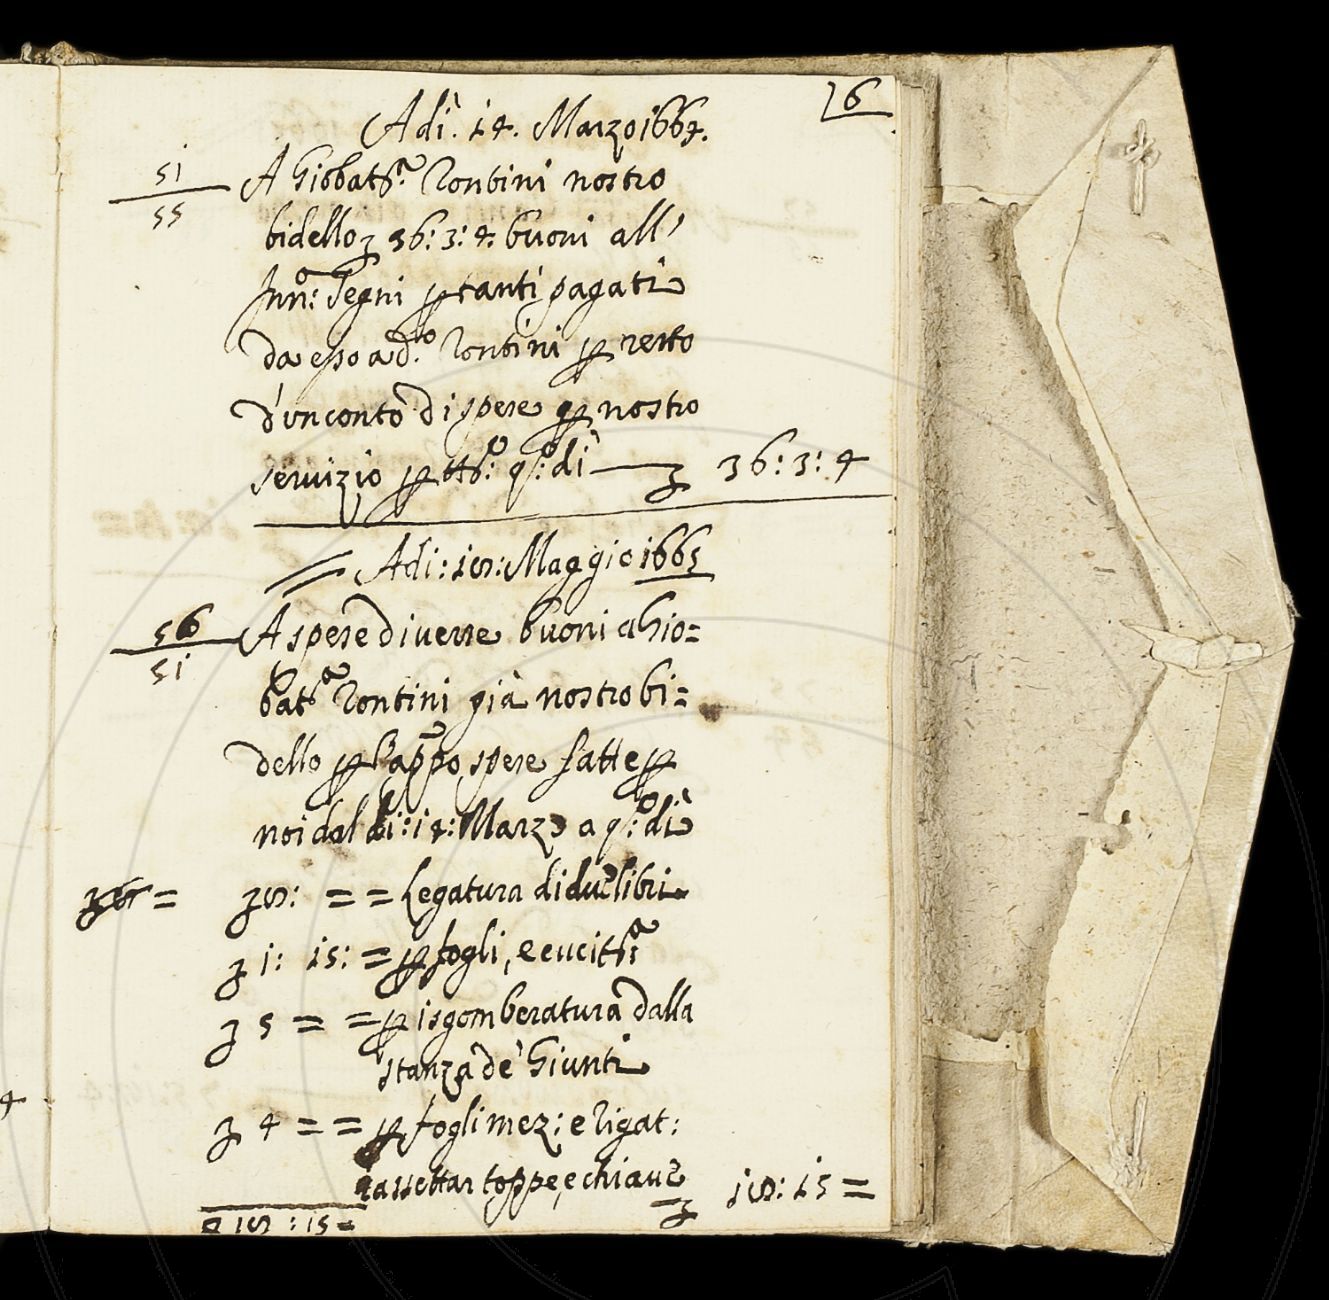 6
Adì. 14. Marzo 1664.
51
55
A Giobatt.a Rontini nostro
bidello 36: 3: 4: buoni all'
Inn.o: Segni p tanti pagati
da esso a d.to Rontini p resto
d'un conto di spese p nostro
servizio p tto: q.o: dì — 36: 3: 4
Adi: 18: Maggio 1665
56
51
A spese diverse buoni a Gio=
batt.a Rontini già nostro bi=
dello p l'app.o spese fatte p
noi dal di: 14: Marzo a q.o: dì
8: = = Legatura di due libri
1: 15: = p fogli, e
5 = = p isgomberatura dalla
stanza de' Giunti
4 = = p fogli mez: e ligat:
rassettar toppe, e chiave 18: 15 =
18: 15 =
4